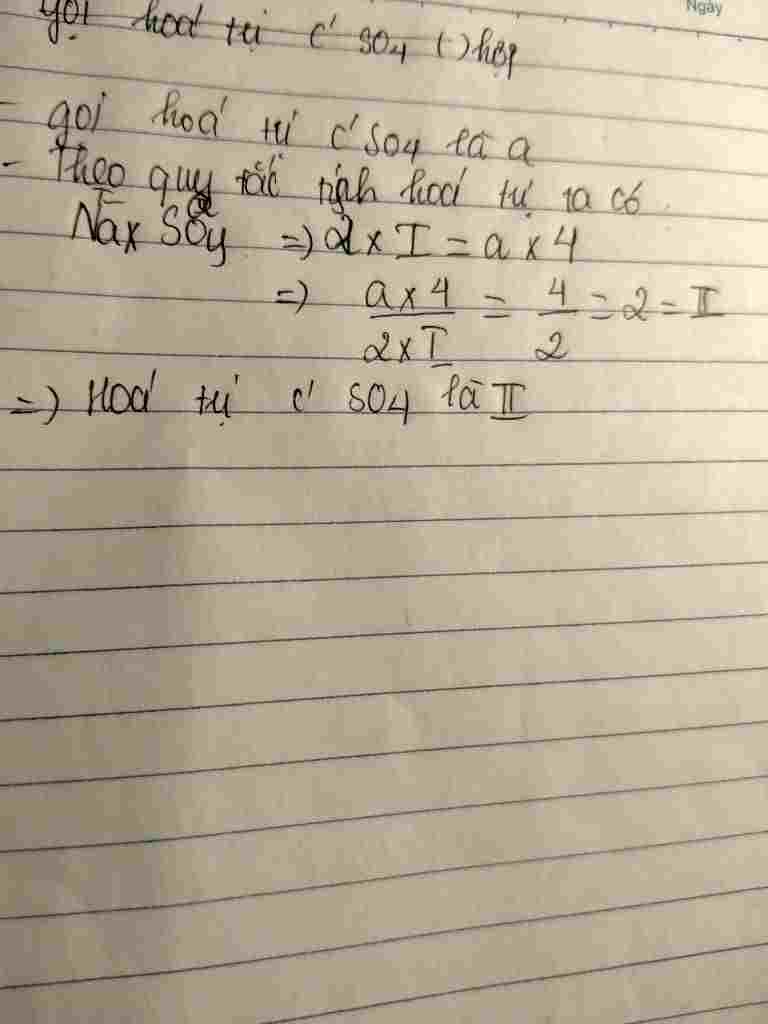 Ngày
gọi hoá tụi c' SO4 () hợp
- gọi hoá tụi c' SO4 là a
- Theo quy tắc tính hoá tụi ta có
I a
Nax SOy => 2 x I = a x 4
=> a x 4 / 2 x I = 4 / 2 = 2 = II
=) Hoá tụi c' SO4 là II